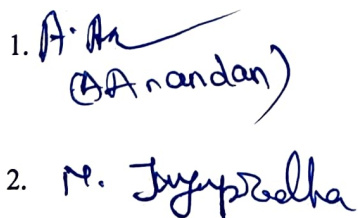 1. A. An
(A Anandan)
2. M. Jayapradha